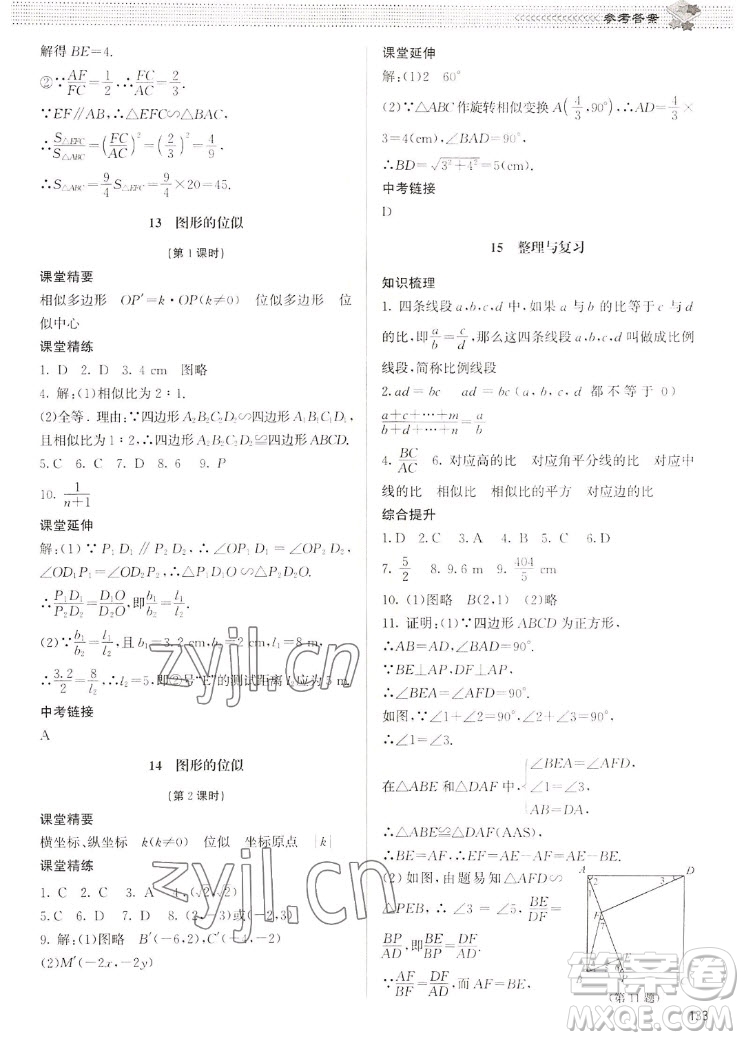 参考答案
解得 BE=4.
②∵AF/FC=1/2, ∴FC/AC=2/3.
∵EF∥AB, ∴△EFC∽△BAC,
∴S△EFC/S△ABC=(FC/AC)²=(2/3)²=4/9
∴S△ABC=9/4 S△EFC=9/4×20=45.
13 图形的位似
(第1课时)
课堂精要
相似多边形 OP′=k·OP(k≠0) 位似多边形 位
似中心
课堂精练
1. D 2. D 3. 4 cm 图略
4. 解:(1)相似比为 2∶1.
(2)全等. 理由:∵四边形 A₂B₂C₂D₂∽四边形 ABCD,
且相似比为 1∶1, ∴四边形 A₂B₂C₂D₂≌四边形 ABCD.
5. C 6. D 7. D 8. 6 9. P
10. 1/(n+1)
课堂延伸
解:(1)∵P₁D₁∥P₂D₂, ∴∠OP₁D₁=∠OP₂D₂,
∠OD₁P₁=∠OD₂P₂, ∴△P₁D₁O∽△P₂D₂O,
∴P₁D₁/P₂D₂=D₁O/D₂O, 即b₁/b₂=l₁/l₂.
(2)∵b₁/b₂=l₁/l₂, 且 b₁=3.2 cm, b₂=2 cm, l₁=8 m,
∴3.2/2=8/l₂, ∴l₂=5, 即②号“E”的测试距离 l₂应为 5 m.
中考链接
A
14 图形的位似
(第2课时)
课堂精要
横坐标、纵坐标 k(k≠0) 位似 坐标原点 |k|
课堂精练
1. C 2. C 3. A 4. (√2,√2)
5. C 6. D 7. D 8. (2,-3)或(-2,3)
9. 解:(1)图略 B′(-6,2), C′(-4,-2)
(2)M′(-2x,-2y)
课堂延伸
解:(1)2 60°
(2)∵△ABC 作旋转相似变换 A(4/3,90°), ∴AD=4/3
×3=4(cm), ∠BAD=90°.
∴BD=√(3²+4²)=5(cm).
中考链接
D
15 整理与复习
知识梳理
1. 四条线段 a,b,c,d 中,如果 a 与 b 的比等于 c 与 d
的比,即a/b=c/d,那么这四条线段 a,b,c,d 叫做成比例
线段,简称比例线段
2. ad=bc ad=bc (a,b,c,d 都不等于 0)
(a+c+⋯+m)/(b+d+⋯+n)=a/b
4. BC/AC 6. 对应高的比 对应角平分线的比 对应中
线的比 相似比 相似比的平方 对应边的比
综合提升
1. D 2. C 3. A 4. D 5. C 6. D
7. 5/2 8. 9.6 m 9. 404/5 cm
10. (1)图略 B(2,1) (2)略
11. 证明:(1)∵四边形 ABCD 为正方形,
∴AB=AD.
∵BE⊥AP, DF⊥AP,
∴∠BEA=∠AFD=90°.
如图,∵∠1+∠2=∠2+∠3=90°,
∴∠1=∠3.
在△ABE 和△AFD 中, {∠BEA=∠AFD, ∠1=∠3, AB=DA,
∴△ABE≌△AFD(AAS),
∴BE=AF, ∴EF=AE-AF=AE-BE.
(2)如图,由题易知△AFD∽
△PEB, ∴∠3=∠5, BE/DF=
BP/AD, 即BE/BP=DF/AD.
∵BE/DF=AF/DF=BP/AD,
(第11题)
133
zyjl.cn
zyjl.cn
答案圈